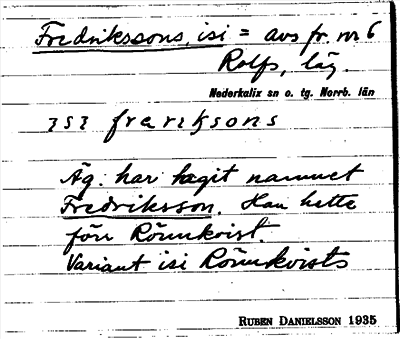 Fredrikssons, isi = avs fr. nr 6
Rolfs, läg.
Nederkalix sn o. tg. Norrb. län
ɪsɪ freriksons
Äg. har tagit namnet
Fredriksson. Han hette
förr Rönnkvist.
Variant isi Rönnkvists
RUBEN DANIELSSON 1935